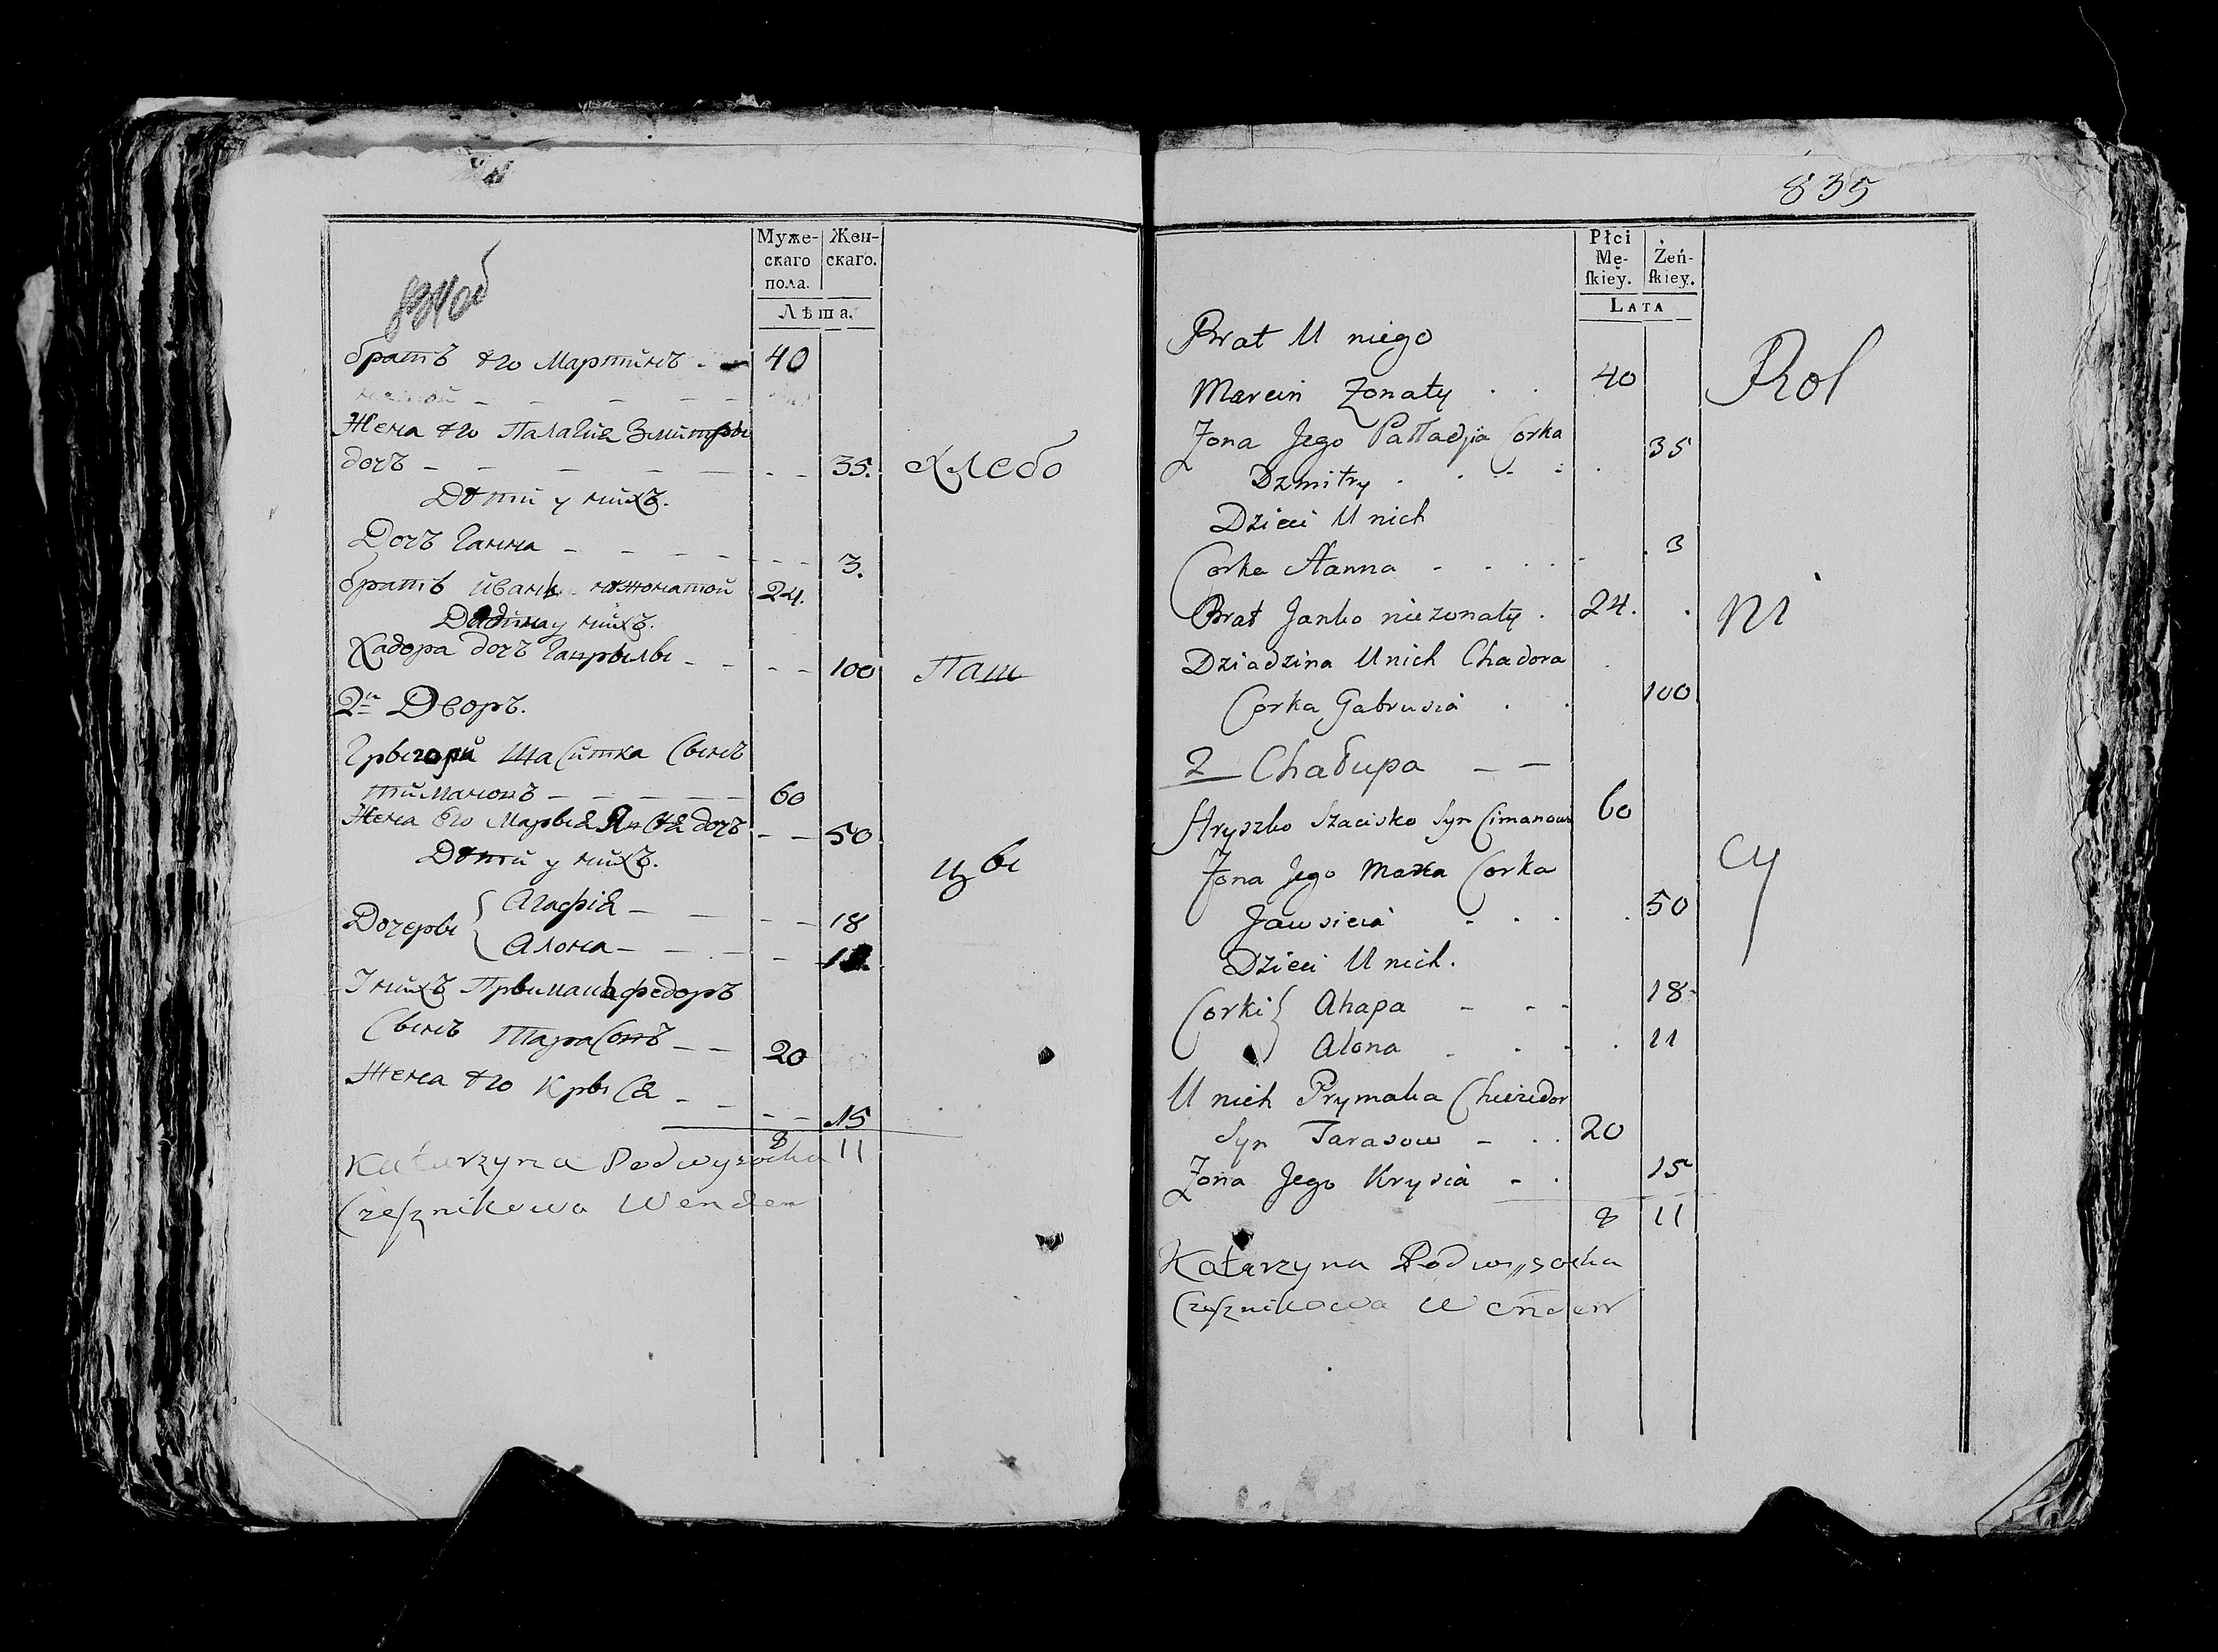 834об
Муже-
скаго
пола.
Жен-
скаго.
Лѣта.
братъ его Мартинъ 40
Жена его Палагия Змитры
дочъ 35.
Дети у нихъ.
Дочъ Ганна 3.
братъ иванъ нежонатой 24.
Дядина у нихъ.
Хадора дочъ Гапрылы 100
2й Дворъ.
Грыгори Шаситка Сынъ
тимановъ 60
Жена его Марыя дочъ 50
Дети у нихъ.
Дочеры
Агафия 18
Алона
У нихъ Прымакъ федоръ
Сынъ Тарасовъ 20
Жена его Крыся 15
8 11
Katarzyna Podwysocka
Czesznikowa Wenden
Хлебо
Паш
цы
835
Płci
Mę-
ſkiey.
Żeń-
ſkiey.
Lata
Brat U niego
Marcin Zonaty 40
Zona Jego Palladja Corka
Dzmitry 35
Dzieci U nich
Corka Hanna 3
Brat Janko niezonaty 24.
Dziadzina U nich Chadora
Corka Gabrusia 100
2 Chałupa
Hryszko Szacisko Syn Cimanow 60
Zona Jego Maria Corka
Jawsieia 50
Dzieci U nich.
Corki
Ahapa 18
Alona 11
U nich Prymaka Chwiedor
Syn Tarasow 20
Zona Jego Krysia 15
8 11
Katarzyna Podwysocka
Czesznikowa Wenden
Rol
ni
cy